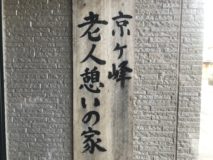 京ヶ峰
老人憩いの家